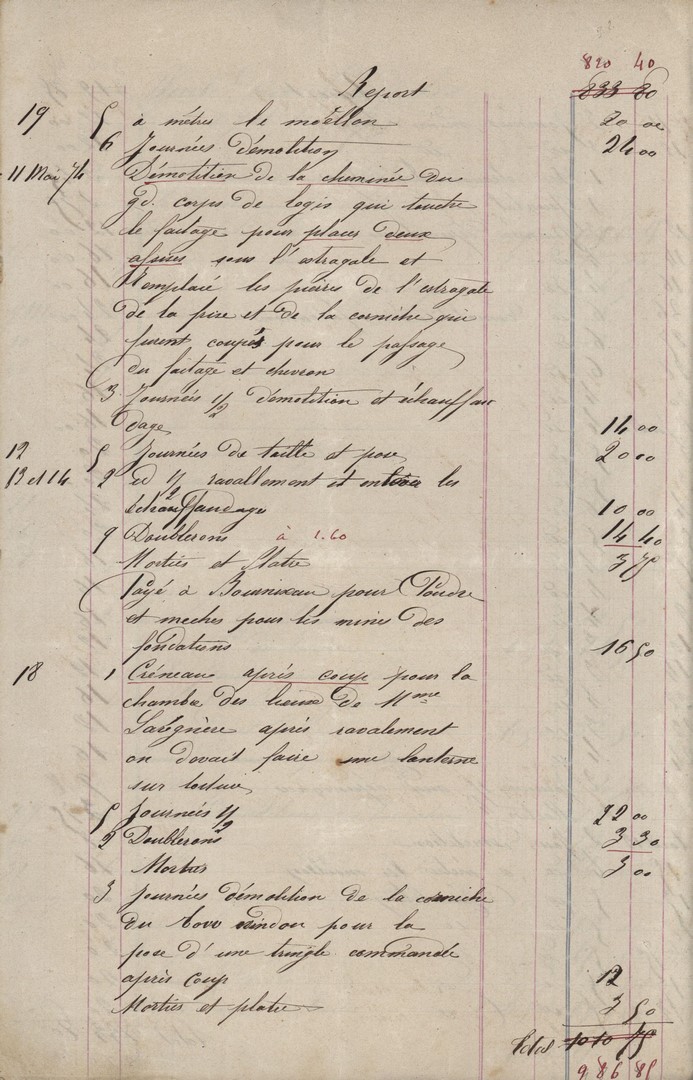 820 40
Report 833 80
19 5 à mètres le moëllon 20 00
6 Journées démolition 24 00
11 Mai 74 Démolition de la cheminée du
gd. corps de logis qui touche
le faitage pour placer deux
assises sous l'astragale et
Remplacé les pierres de l'astragale
de la frize et de la corniche qui
furent coupés pour le passage
du faitage et chevron
3 Journées 1/2 démolition et échauffau
dage 14 00
12 5 Journées de taille et pose 20 00
13 et 14 2 id 1/2 ravallement et enlever les
échauffaudage 10 00
9 Doublerons à 1.60 14 40
Mortier et Platre 3 75
Payé à pour Poudre
et meches pour les mines des
fondations 16 50
18 1 Créneau après coup pour la
chambre des lieux de Mme
après ravalement
on devait faire une lanterne
sur toiture
5 Journées 1/2 22 00
2 Doublerons 3 30
Mortier 3 00
3 Journées démolition de la corniche
du pour la
pose d'une tringle commandé
après coup 12
Mortier et platre 3 50
Total 1010 75
986 85